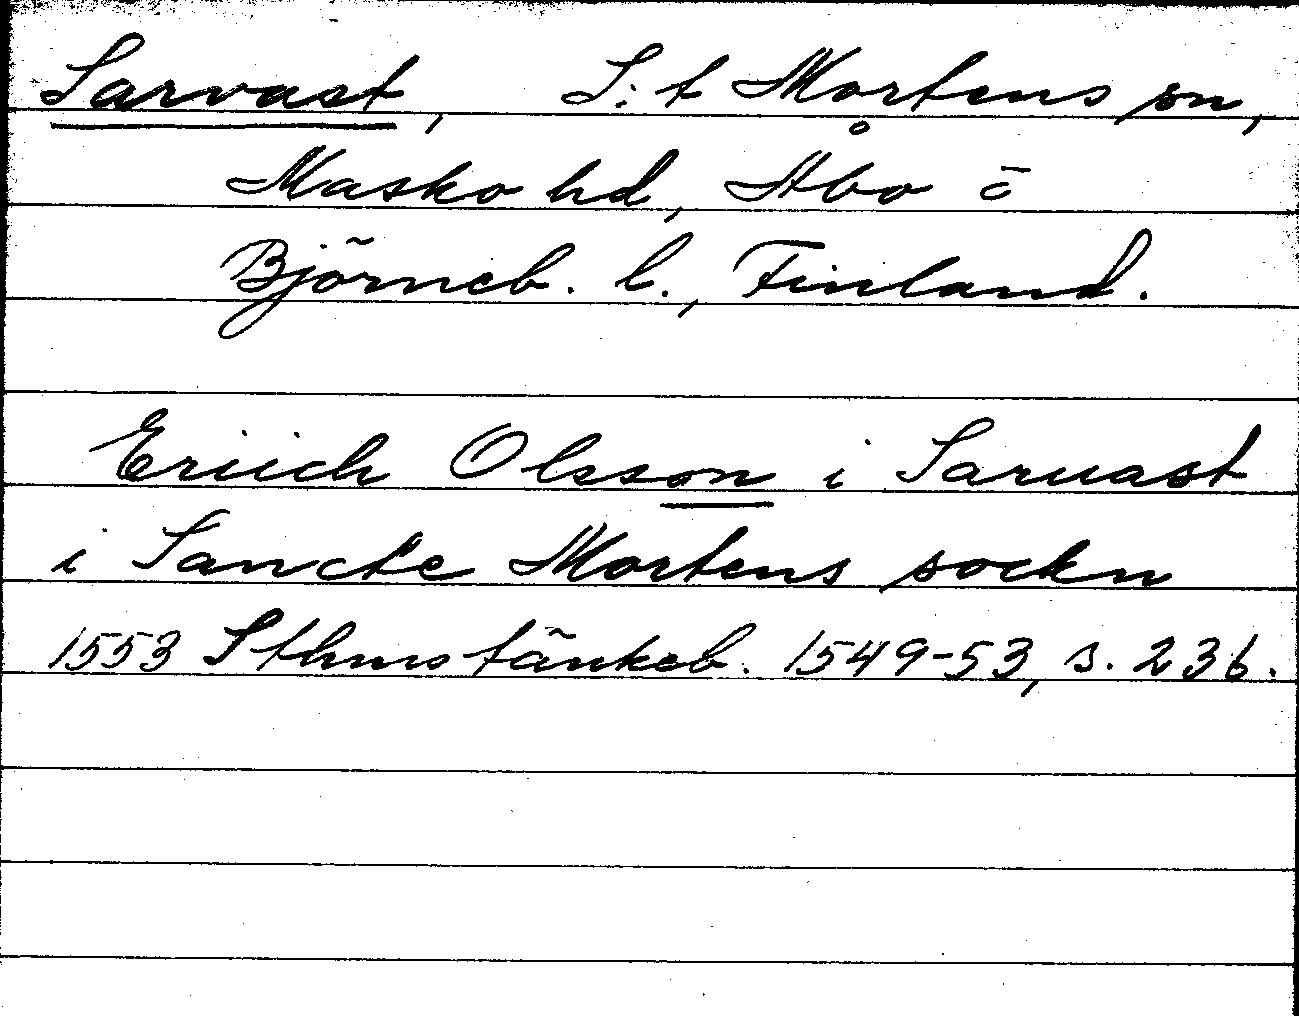 Sarvast, S:t Mortens sn,
Masko hd, Åbo o
Björneb. l., Finland.
Eriich Olsson i Saruast
i Sancte Mortens sockn
1553 Sthms tänkeb. 1549-53, s. 236.